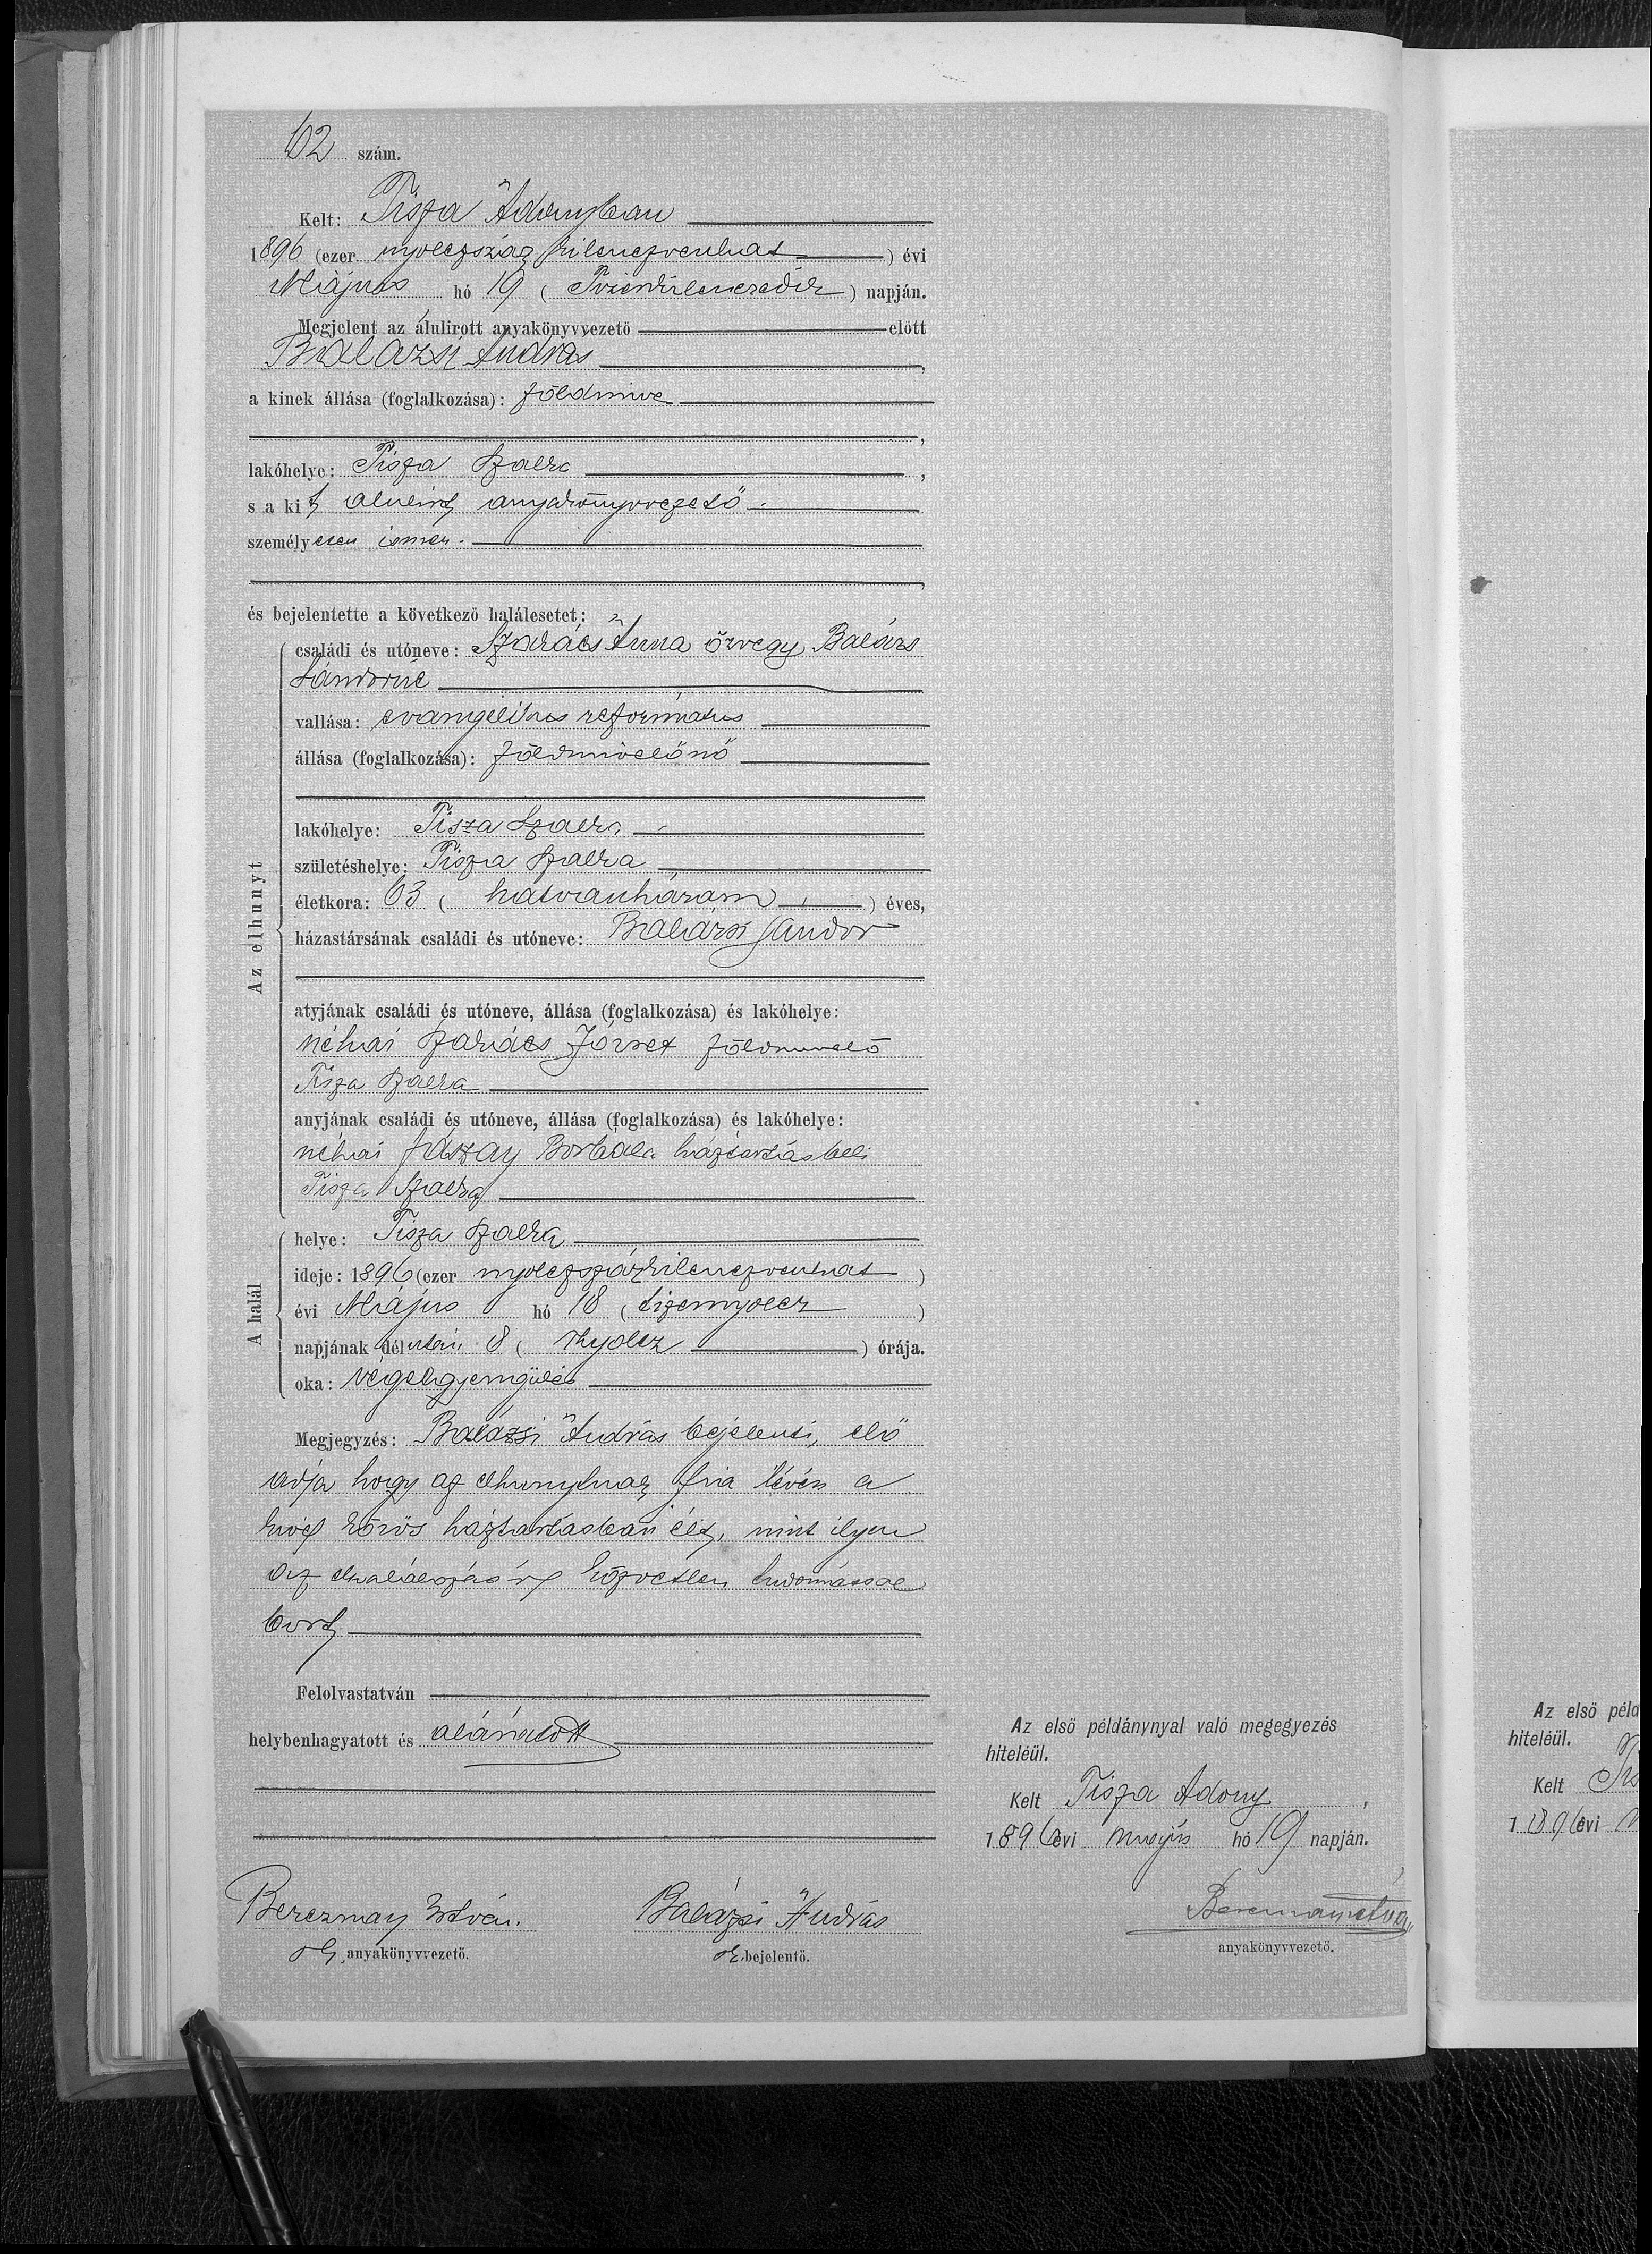 62 szám.
Kelt: Tisza Adonyban
1896 (ezer nyolczszáz kilenczvenhat) évi
Május hó 19 (Tizenkilenczedik) napján.
Megjelent az álulirott anyakönyvvezető előtt
Balázsi András,
a kinek állása (foglalkozása): földmive
lakóhelye: Tisza Szalka,
s a kit alulirt anyakönyvvezető
személyesen ismer.
és bejelentette a következő halálesetet:
Az elhunyt
családi és utóneve: Szakács Anna özvegy Balázs
Sándorné
vallása: evangelikus református
állása (foglalkozása): földmivelőnő
lakóhelye: Tisza Szalka
születéshelye: Tisza Szalka
életkora: 63 (hatvanhárom) éves,
házastársának családi és utóneve: Balázsi Sándor
atyjának családi és utóneve, állása (foglalkozása) és lakóhelye:
néhai Szakács József földmivelő
Tisza Szalka
anyjának családi és utóneve, állása (foglalkozása) és lakóhelye:
néhai Borbála háztartásbeli
Tisza Szalka
A halál
helye: Tisza Szalka
ideje: 1896 (ezer nyolczszázkilenczvenhat)
évi Május hó 18 (tizennyolcz)
napjának délután 8 (Nyolcz) órája.
oka: végelgyengülés
Megjegyzés: Balázsi András bejelenti, elő
adja hogy az elhunytnak fia lévén a
kivel közös háztartásban élt, mint ilyen
az elhalálozásról közvetlen tudomással
birt
Felolvastatván
helybenhagyatott és aláiratott
Bereznay István. Balázsi András
anyakönyvvezető. bejelentő.
Az első példánynyal való megegyezés
hiteléül.
Kelt Tisza Adony,
1896 évi május hó 19 napján.
Bereznay István
anyakönyvvezető.
Az első péld
hiteléül.
Kelt Tis
1896 évi